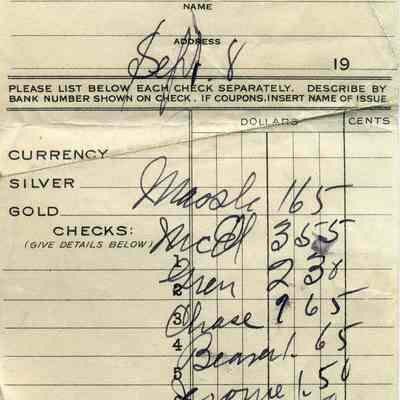 NAME
ADDRESS
Sept. 8 19
PLEASE LIST BELOW EACH CHECK SEPARATELY. DESCRIBE BY
BANK NUMBER SHOWN ON CHECK. IF COUPONS, INSERT NAME OF ISSUE
DOLLARS CENTS
CURRENCY
SILVER
GOLD 165
CHECKS:
(GIVE DETAILS BELOW) 3 55
1
2 38
2
Chase 1 65
3
4 1. 65
5 1. 50